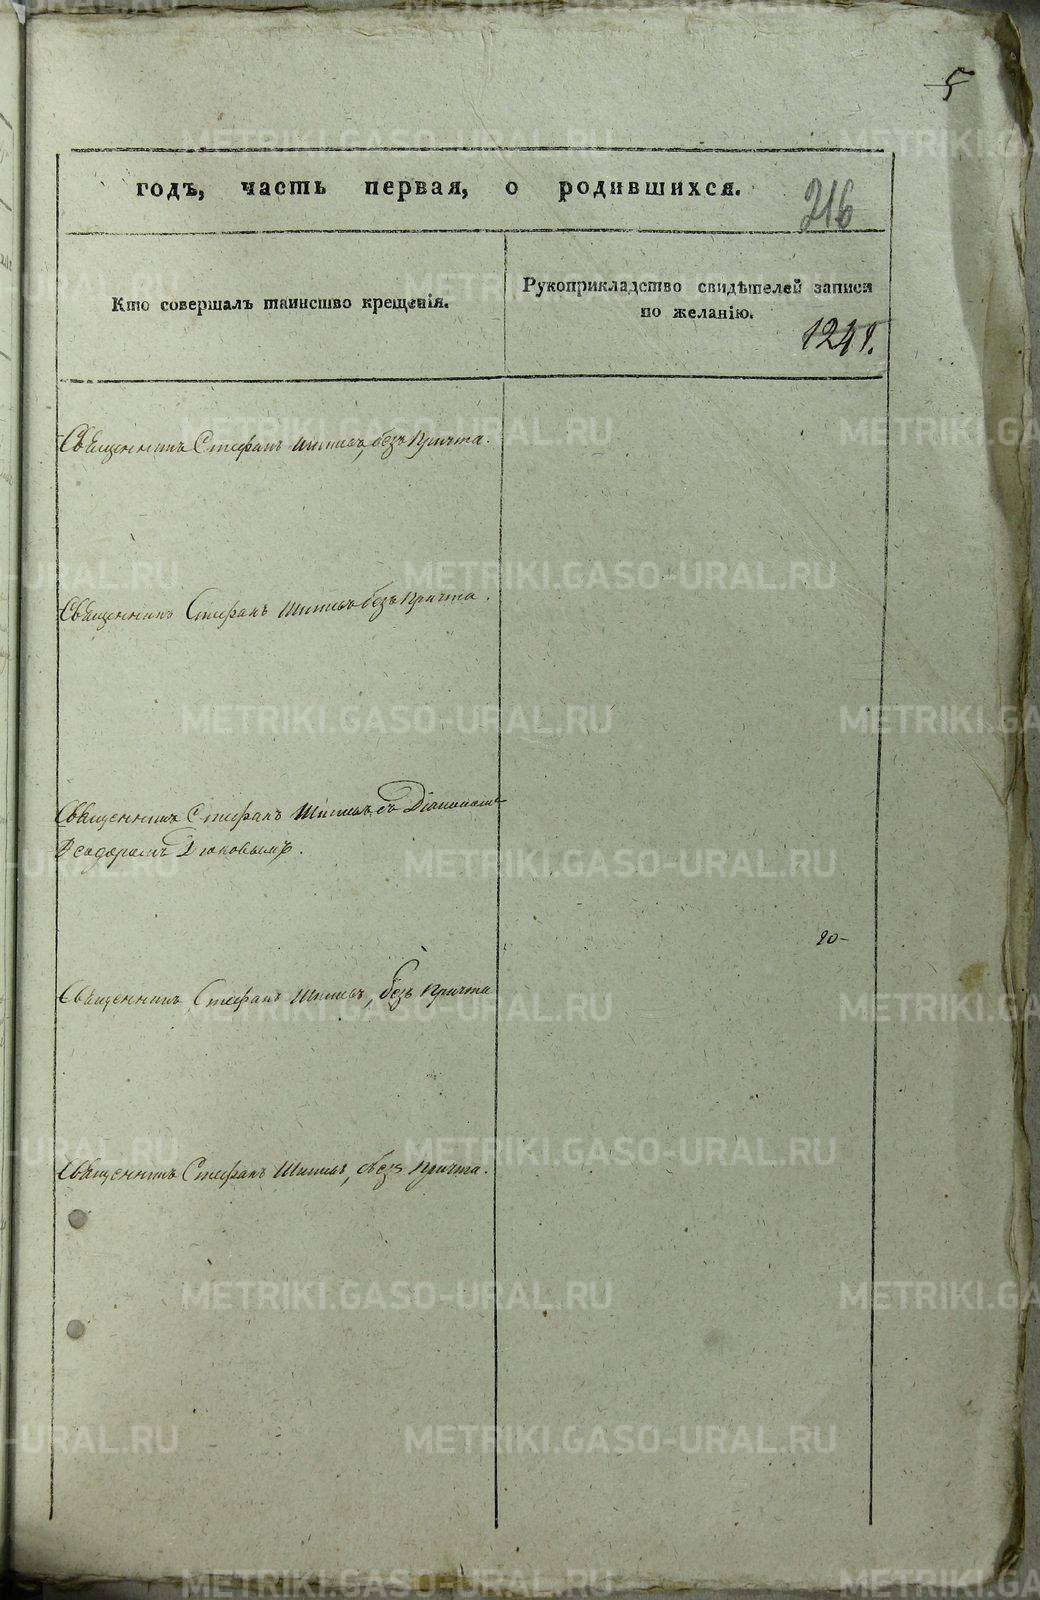 5
годъ, часть первая, о родившихся.
216
Кто совершалъ таинство крещенія.
Рукоприкладство свидѣтелей записи
по желанію.
1241.
Священникъ Стефанъ Шишевъ, безъ Причта.
Священникъ Стефанъ Шишевъ безъ Причта.
Священникъ Стефанъ Шишевъ съ Діакономъ
Ѳеодоромъ
20-
Священникъ Стефанъ Шишевъ, безъ Причта
Священникъ Стефанъ Шишевъ, безъ Причта.
METRIKI.GASO-URAL.RU